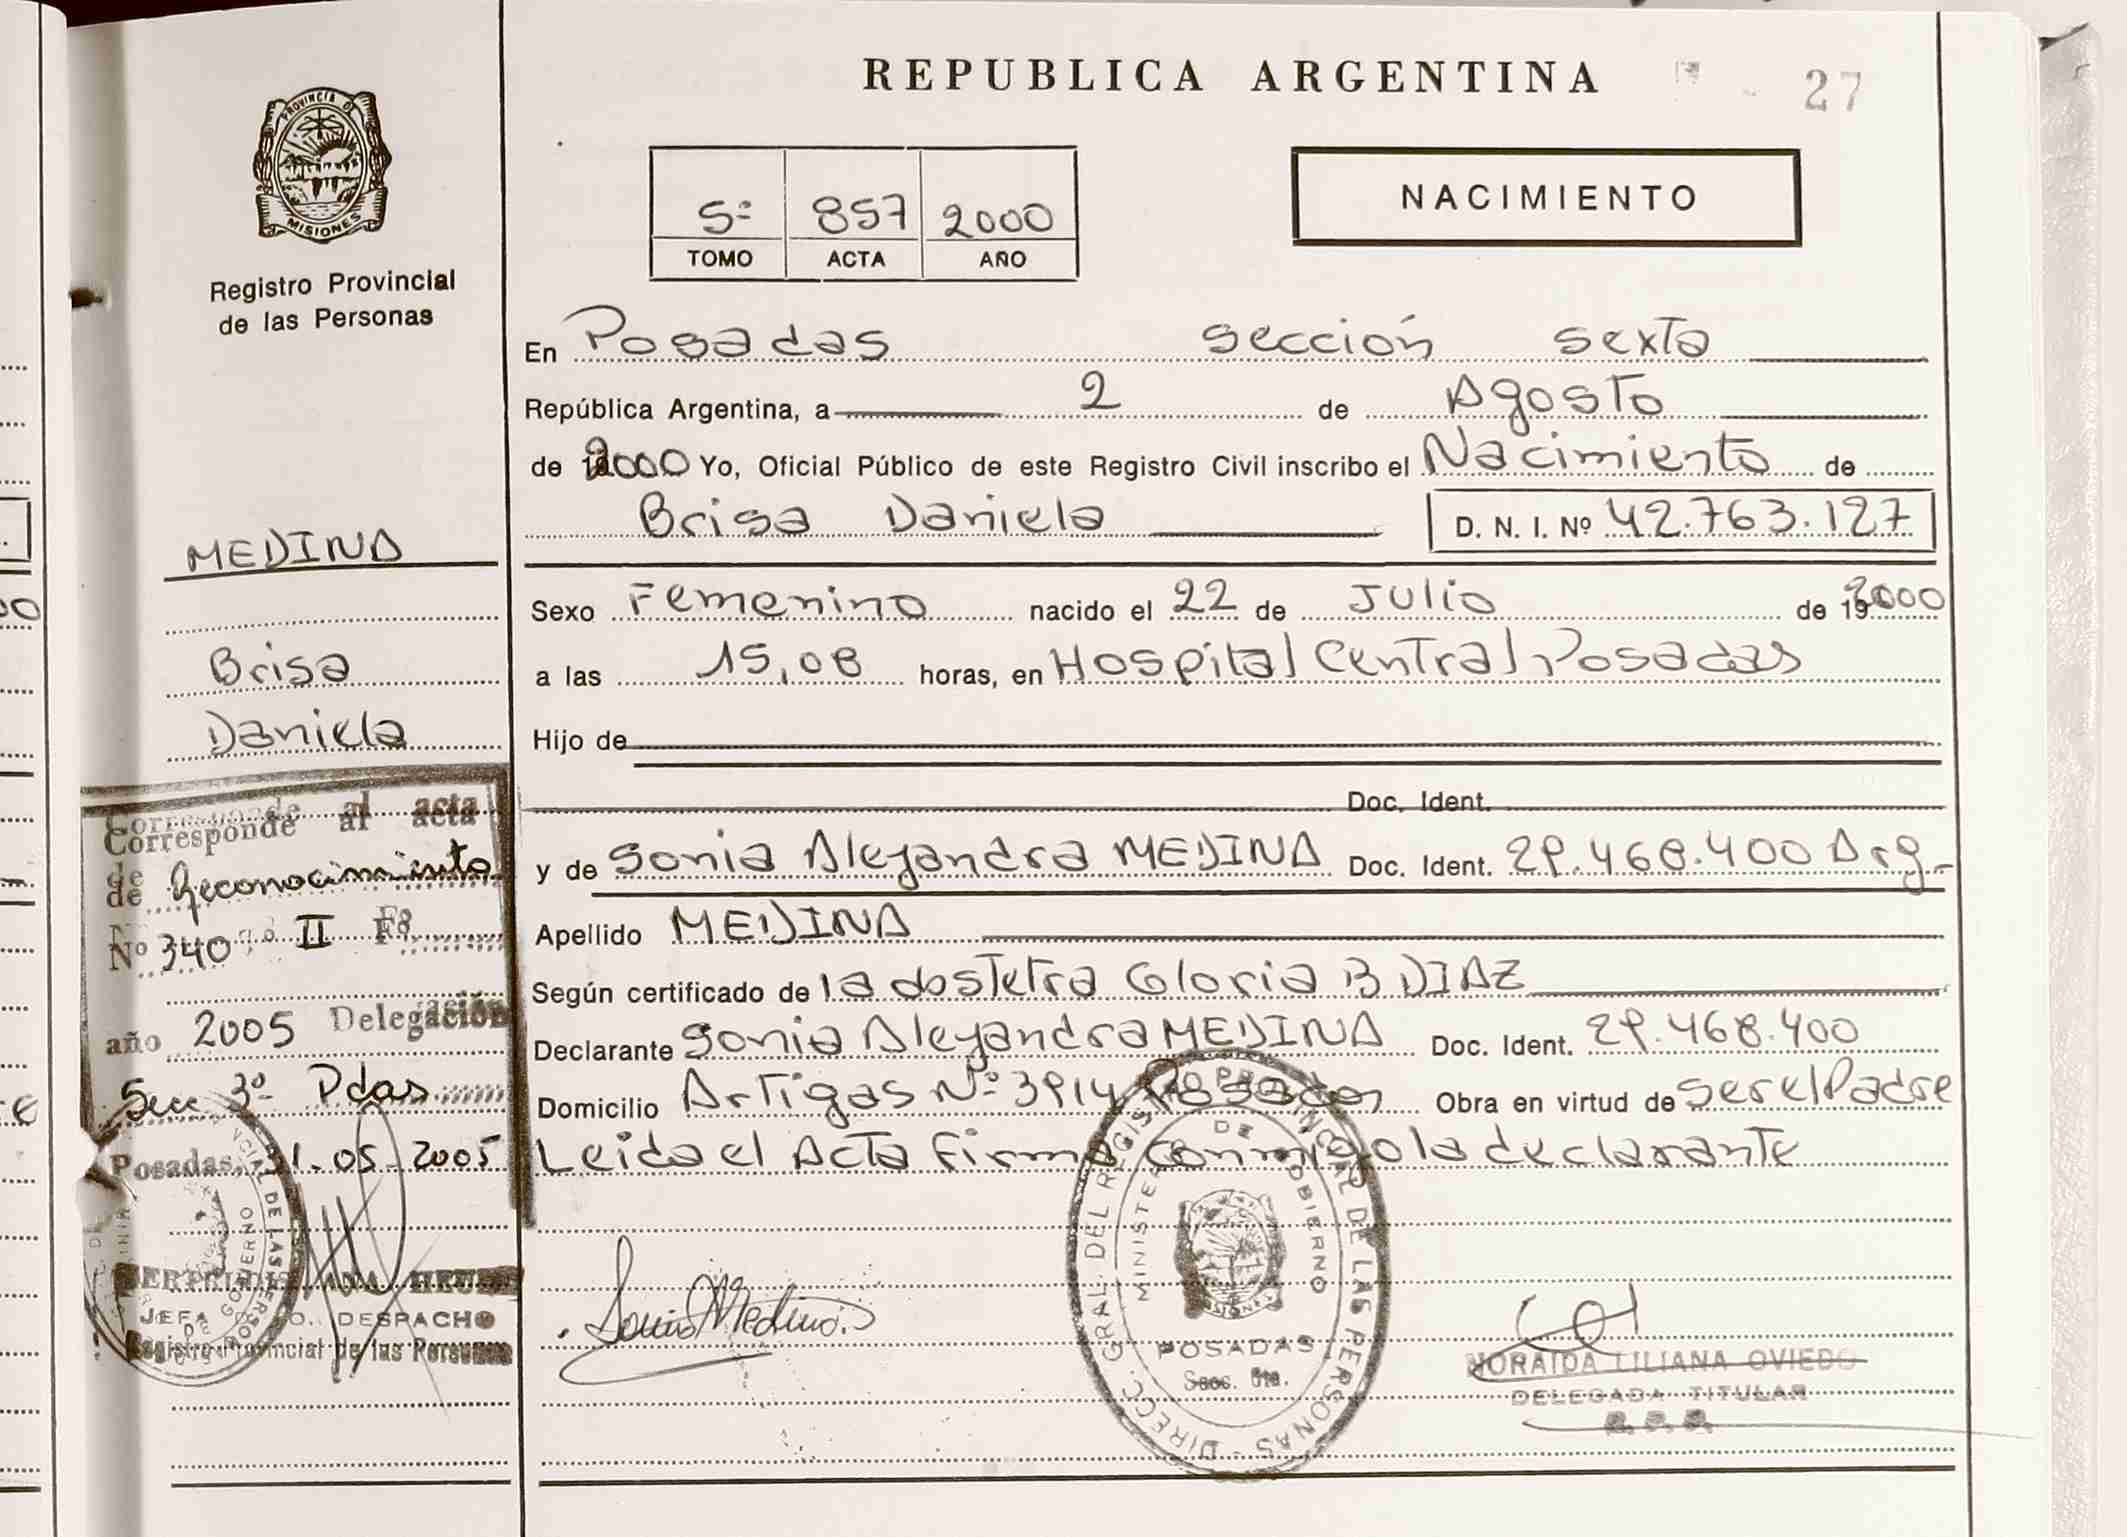 REPUBLICA ARGENTINA
27
PROVINCIA DE
MISIONES
Registro Provincial
de las Personas
5º 857 2000
TOMO ACTA AÑO
NACIMIENTO
En Posadas sección sexta
República Argentina, a 2 de Agosto
de 2000 Yo, Oficial Público de este Registro Civil inscribo el Nacimiento de
Brisa Daniela D. N. I. Nº 42.763.127
Sexo Femenino nacido el 22 de Julio de 2000
a las 15,08 horas, en Hospital Central Posadas
Hijo de
Doc. Ident.
y de Sonia Alejandra MEDINA Doc. Ident. 29.468.400 Arg.
Apellido MEDINA
Según certificado de la obstetra Gloria B DIAZ
Declarante Sonia Alejandra MEDINA Doc. Ident. 29.468.400
Domicilio Artigas Nº 3914 Posadas Obra en virtud de ser el Padre
Leida el Acta Firma conmigo la declarante
Sonia Medina
DIRECC. GRAL. DEL REGISTRO PROVINCIAL DE LAS PERSONAS
MINISTERIO DE GOBIERNO
POSADAS
Secc. 6ta.
NORAIDA LILIANA OVIEDO
DELEGADA TITULAR
MEDINA
Brisa
Daniela
Corresponde al acta
de Reconocimiento
Nº 340 Tº II Fº
año 2005 Delegación
Secc 3º Pdas
Posadas, 31.05.2005
ANA
JEFA DESPACHO
Registro Provincial de las Personas